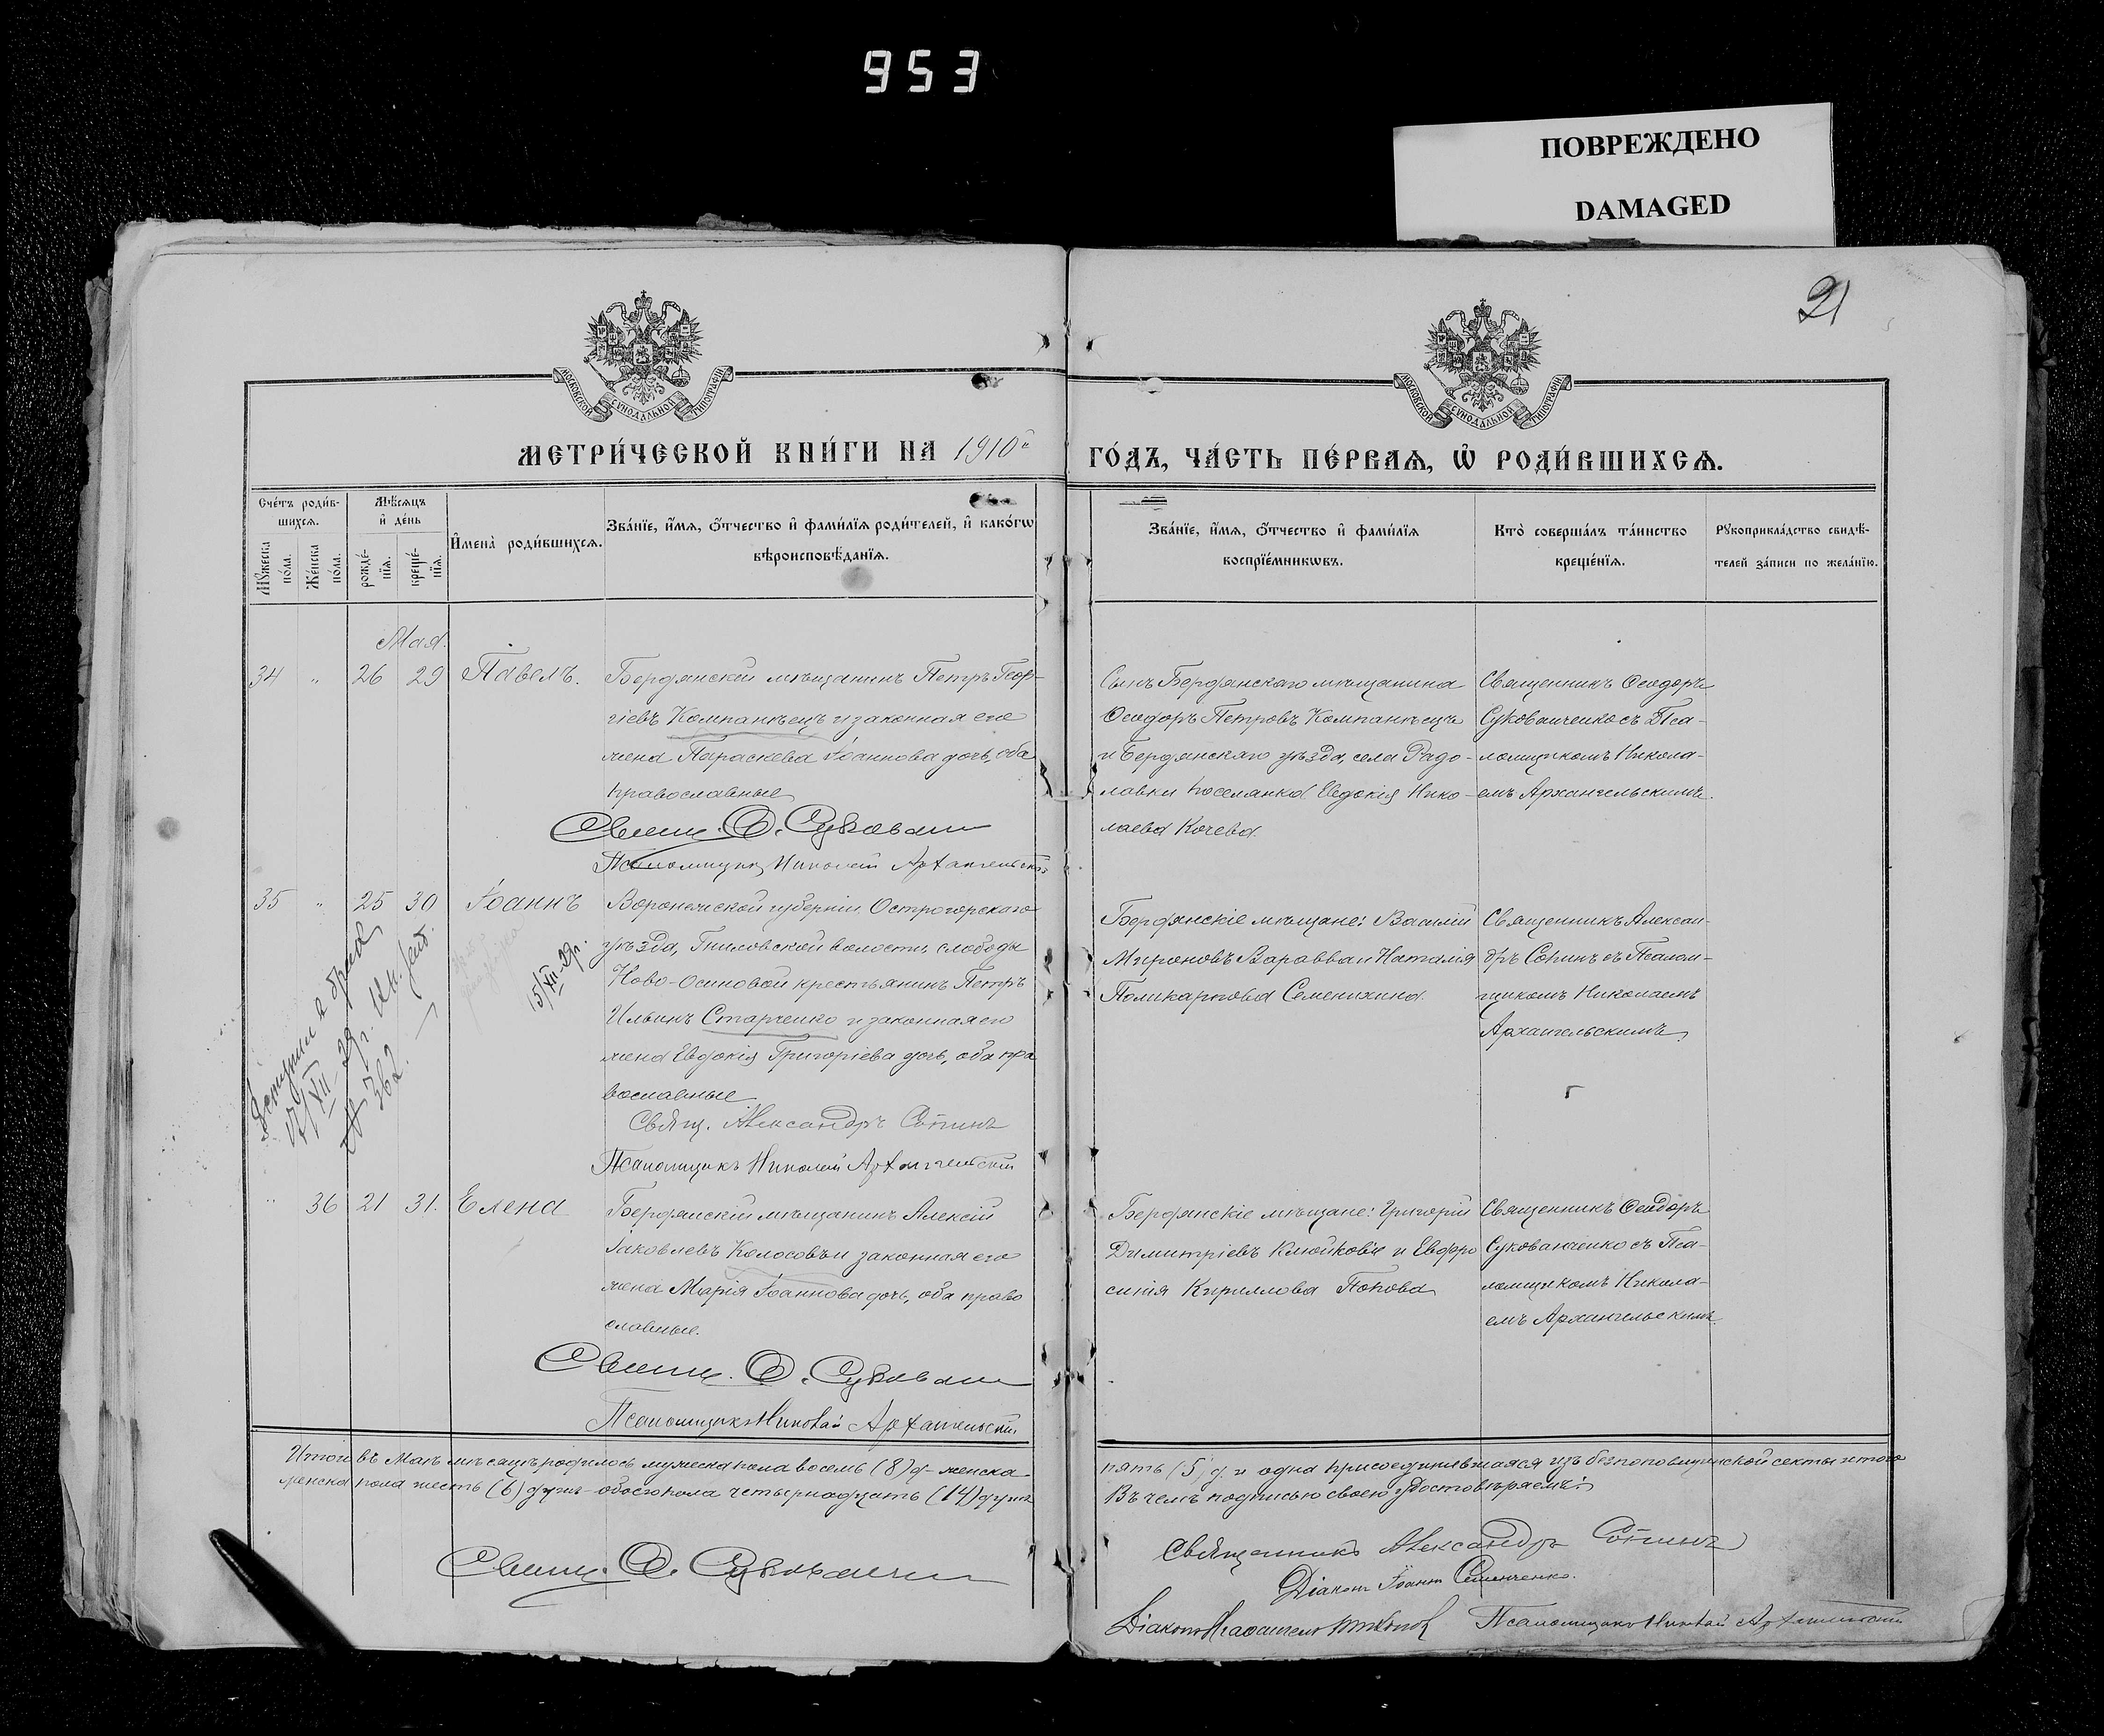 953
ПОВРЕЖДЕНО
DAMAGED
21
МОСКОВСКОЙ СѴНОДАЛЬНОЙ ТИПОГРАФІИ
МОСКОВСКОЙ СѴНОДАЛЬНОЙ ТИПОГРАФІИ
МЕТРИ́ЧЕСКОЙ КНИ́ГИ НА 1910й ГО́ДЪ, ЧА́СТЬ ПЕ́РВАѦ, Ѽ РОДИ́ВШИХСѦ.
Сче́тъ роди́в-
шихсѧ.
Мꙋ́жеска по́ла.
Же́нска по́ла.
Мѣ́сѧцъ
и҆ де́нь
рожде́-
нїѧ.
креще́-
нїѧ.
И҆мена̀ роди́вшихсѧ.
Зва́нїе, и҆́мѧ, ѻ҆́тчество и҆ фами́лїѧ роди́телей, и҆ како́гѡ
вѣроисповѣ́данїѧ.
Зва́нїе, и҆́мѧ, ѻ҆́тчество и҆ фами́лїѧ
воспрїе́мникѡвъ.
Кто̀ соверша́лъ та́инство
креще́нїѧ.
Рꙋкоприкла́дство свидѣ́-
телей за́писи по жела́нїю.
Мая.
34 " 26 29 Павелъ.
Бердянскій мѣщанинъ Петръ Геор-
гіевъ Компанѣецъ и законная его
жена Параскева Іоаннова дочь, оба
православные
Свящ. Ѳ. Сукован
Псаломщикъ Николай Архангельскій
Сынъ Бердянскаго мѣщанина
Ѳеодоръ Петровъ Компанѣецъ
и Бердянскаго уѣзда, села Радо-
ловки поселянка Евдокія Нико-
лаева Кочева.
Священникъ Ѳеодоръ
Сукованченко съ Пса-
ломщикомъ Никола-
емъ Архангельскимъ.
35 " 25 30 Іоаннъ
Воронежской губерніи, Острогорскаго
уѣзда, Гниловской волости, слободы
Ново-Осиновой крестьянинъ Петръ
Ильинъ Старченко и законная его
жена Евдокія Григоріева дочь, оба пра
вославные
Свящ. Александръ Сопинъ
Псаломщикъ Николай Архангельскій
15/XII-29г.
17/XII-29 г.
362.
Бердянскіе мѣщане: Василій
Мироновъ Варавва и Наталія
Поликарпова Семенихина.
Священникъ Алексан-
дръ Сопинъ съ Псалом-
щикомъ Николаемъ
Архангельскимъ.
" 36 21 31. Елена
Бердянскій мѣщанинъ Алексій
Іаковлевъ Колосовъ и законная его
жена Марія Іоаннова дочь, оба право
славные.
Свящ. Ѳ. Сукован
Псаломщикъ Николай Архангельскій
Бердянскіе мѣщане: Григорій
Димитріевъ и Евфро
синія Кириллова Попова
Священникъ Ѳеодоръ
Сукованченко съ Пса-
ломщикомъ Никола-
емъ Архангельскимъ.
Итого въ Маѣ мѣсяцѣ родилось мужеска пола восемь (8) д- женска
пять (5) д. и одна присоединившаяся изъ безпоповщинской секты итого
женска пола шесть (6) душъ- обоего пола четырнадцать (14) душъ
Въ чемъ подписью своею удостовѣряемъ:
Свящ. Ѳ. Сукованчен
Священникъ Александръ Сопинъ
Діаконъ Іоаннъ Семенченко.
Діаконъ Псаломщикъ Николай Архангельскій